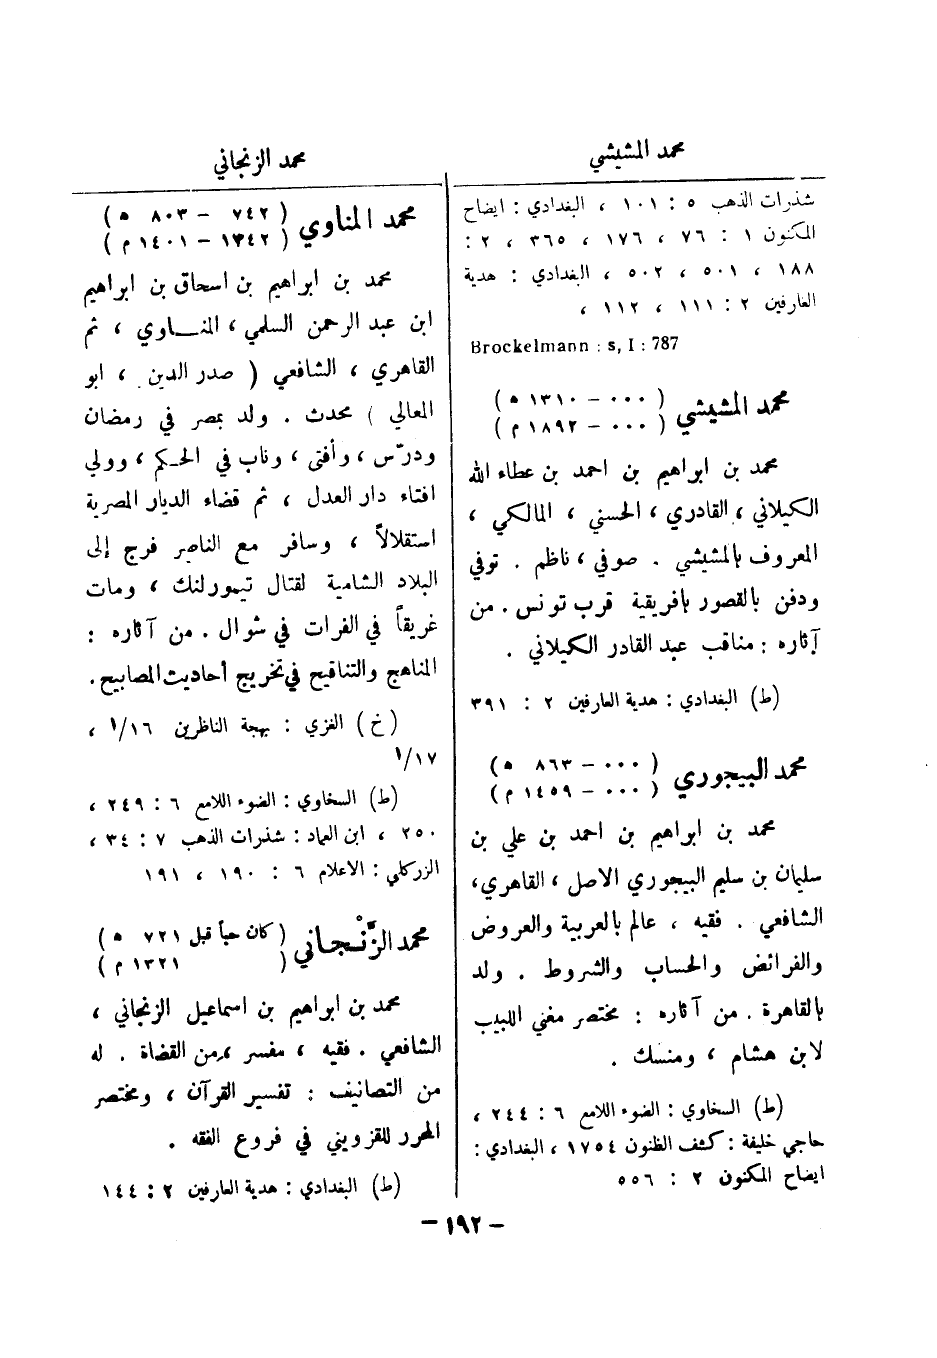 محمد المشيشي
شذرات الذهب ٥ : ١٠١ ، البغدادي : ايضاح
المكنون ١ : ٧٦ ، ١٧٦ ، ٣٦٥ ، ٢ :
١٨٨ ، ٥٠١ ، ٥٠٢ ، البغدادي : هدية
العارفين ٢ : ١١١ ، ١١٢ ،
Brockelmann : s, I : 787
محمد المشيشي ( ٠٠٠ – ١٣١٠ ه )
( ٠٠٠ – ١٨٩٢ م )
محمد بن ابراهيم بن احمد بن عطاء الله
الكيلاني ، القادري ، الحسني ، المالكي ،
المعروف بالمشيشي . صوفي ، ناظم . توفي
ودفن بالقصور بافريقية قرب تونس . من
آثاره : مناقب عبد القادر الكيلاني .
(ط) البغدادي : هدية العارفين ٢ : ٣٩١
محمد البيجوري ( ٠٠٠ – ٨٦٣ ه )
( ٠٠٠ – ١٤٥٩ م )
محمد بن ابراهيم بن احمد بن علي بن
سليمان بن سليم البيجوري الاصل ، القاهري ،
الشافعي . فقيه ، عالم بالعربية والعروض
والفرائض والحساب والشروط . ولد
بالقاهرة . من آثاره : مختصر مغني اللبيب
لابن هشام ، ومنسك .
(ط) السخاوي : الضوء اللامع ٦ : ٢٤٤ ،
حاجي خليفة : كشف الظنون ١٧٥٤ ، البغدادي :
ايضاح المكنون ٢ : ٥٥٦
محمد الزنجاني
محمد المناوي ( ٧٤٢ – ٨٠٣ ه )
( ١٣٤٢ – ١٤٠١ م )
محمد بن ابراهيم بن اسحاق بن ابراهيم
ابن عبد الرحمن السلمي ، المنـــاوي ، ثم
القاهري ، الشافعي ( صدر الدين ، ابو
المعالي ) محدث . ولد بمصر في رمضان
ودرّس ، وأفتى ، وناب في الحكم ، وولي
افتاء دار العدل ، ثم قضاء الديار المصرية
استقلالاً ، وسافر مع الناصر فرج إلى
البلاد الشامية لقتال تيمورلنك ، ومات
غريقاً في الفرات في شوال . من آثاره :
المناهج والتناقيح في تخريج أحاديث المصابيح .
(خ) الغزي : بهجة الناظرين ١٦/١ ،
١٧/١
(ط) السخاوي : الضوء اللامع ٦ : ٢٤٩ ،
٢٥٠ ، ابن العماد : شذرات الذهب ٧ : ٣٤ ،
الزركلي : الاعلام ٦ : ١٩٠ ، ١٩١
محمد الزَّنْجاني ( كان حياً قبل ٧٢١ ه )
( ١٣٢١ م )
محمد بن ابراهيم بن اسماعيل الزنجاني ،
الشافعي . فقيه ، مفسر ، من القضاة . له
من التصانيف : تفسير القرآن ، ومختصر
المحرر للقزويني في فروع الفقه .
(ط) البغدادي : هدية العارفين ٢ : ١٤٤
– ١٩٢ –